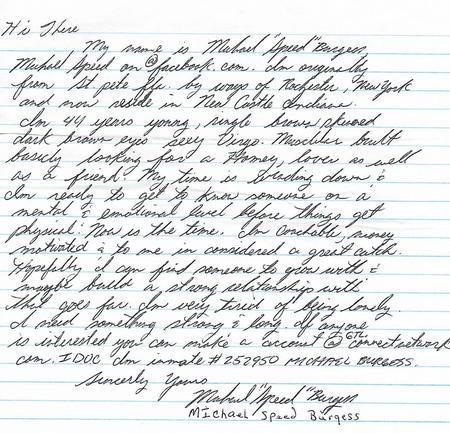 Hi There
My name is Michael "Speed" Burgess,
Michael Speed on @facebook.com. Im originally
from St pete fla. by ways of Rochester, New York
and now reside in New Castle Indiana.
Im 44 years young, single brown skinned
dark brown eyes sexy Virgo. Muscular built
basicly looking for a Homey, lover as well
as a friend. My time is winding down, &
Im ready to get to know someone on a
mental & emotional level before things get
physical. Now is the time. Im coachable, money
motivated & to me im considered a great catch.
Hopefully I can find someone to grow with &
maybe build a strong relationship with
that goes far. Im very tired of being lonely.
I need something strong & long if anyone
is interested you can make a account @ GTL connectnetwork
com. IDOC Im inmate # 252950 MICHAEL BURGESS.
Sincerly Yours
Michael "Speed" Burgess
Michael Speed Burgess